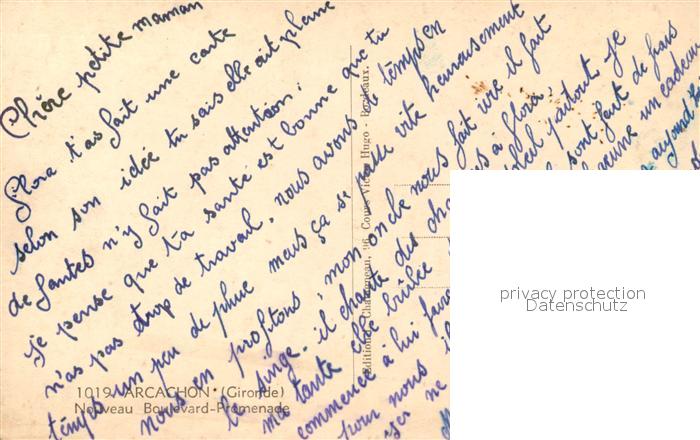 Chère petite maman
Flora t'as fait une carte
selon son idée tu sais elle est pleine
de fautes n'y fait pas attention,
je pense que ta santé est bonne que tu
n'as pas trop de travail, nous avons le temps en
temps un peu de pluie mais ça se passe vite heureusement
nous en profitons, mon oncle nous fait rire il fait
le singe. il chante des à Flora,
ma tante elle brûlée soleil partout je
commence à lui sont faut de frais
pour nous il jeune un cadeau
ne aujourd'h
1019 ARCACHON (Gironde)
Nouveau Boulevard-Promenade
Editions Chatagneau, 96, Cours Victor Hugo - Bordeaux.
privacy protection
Datenschutz